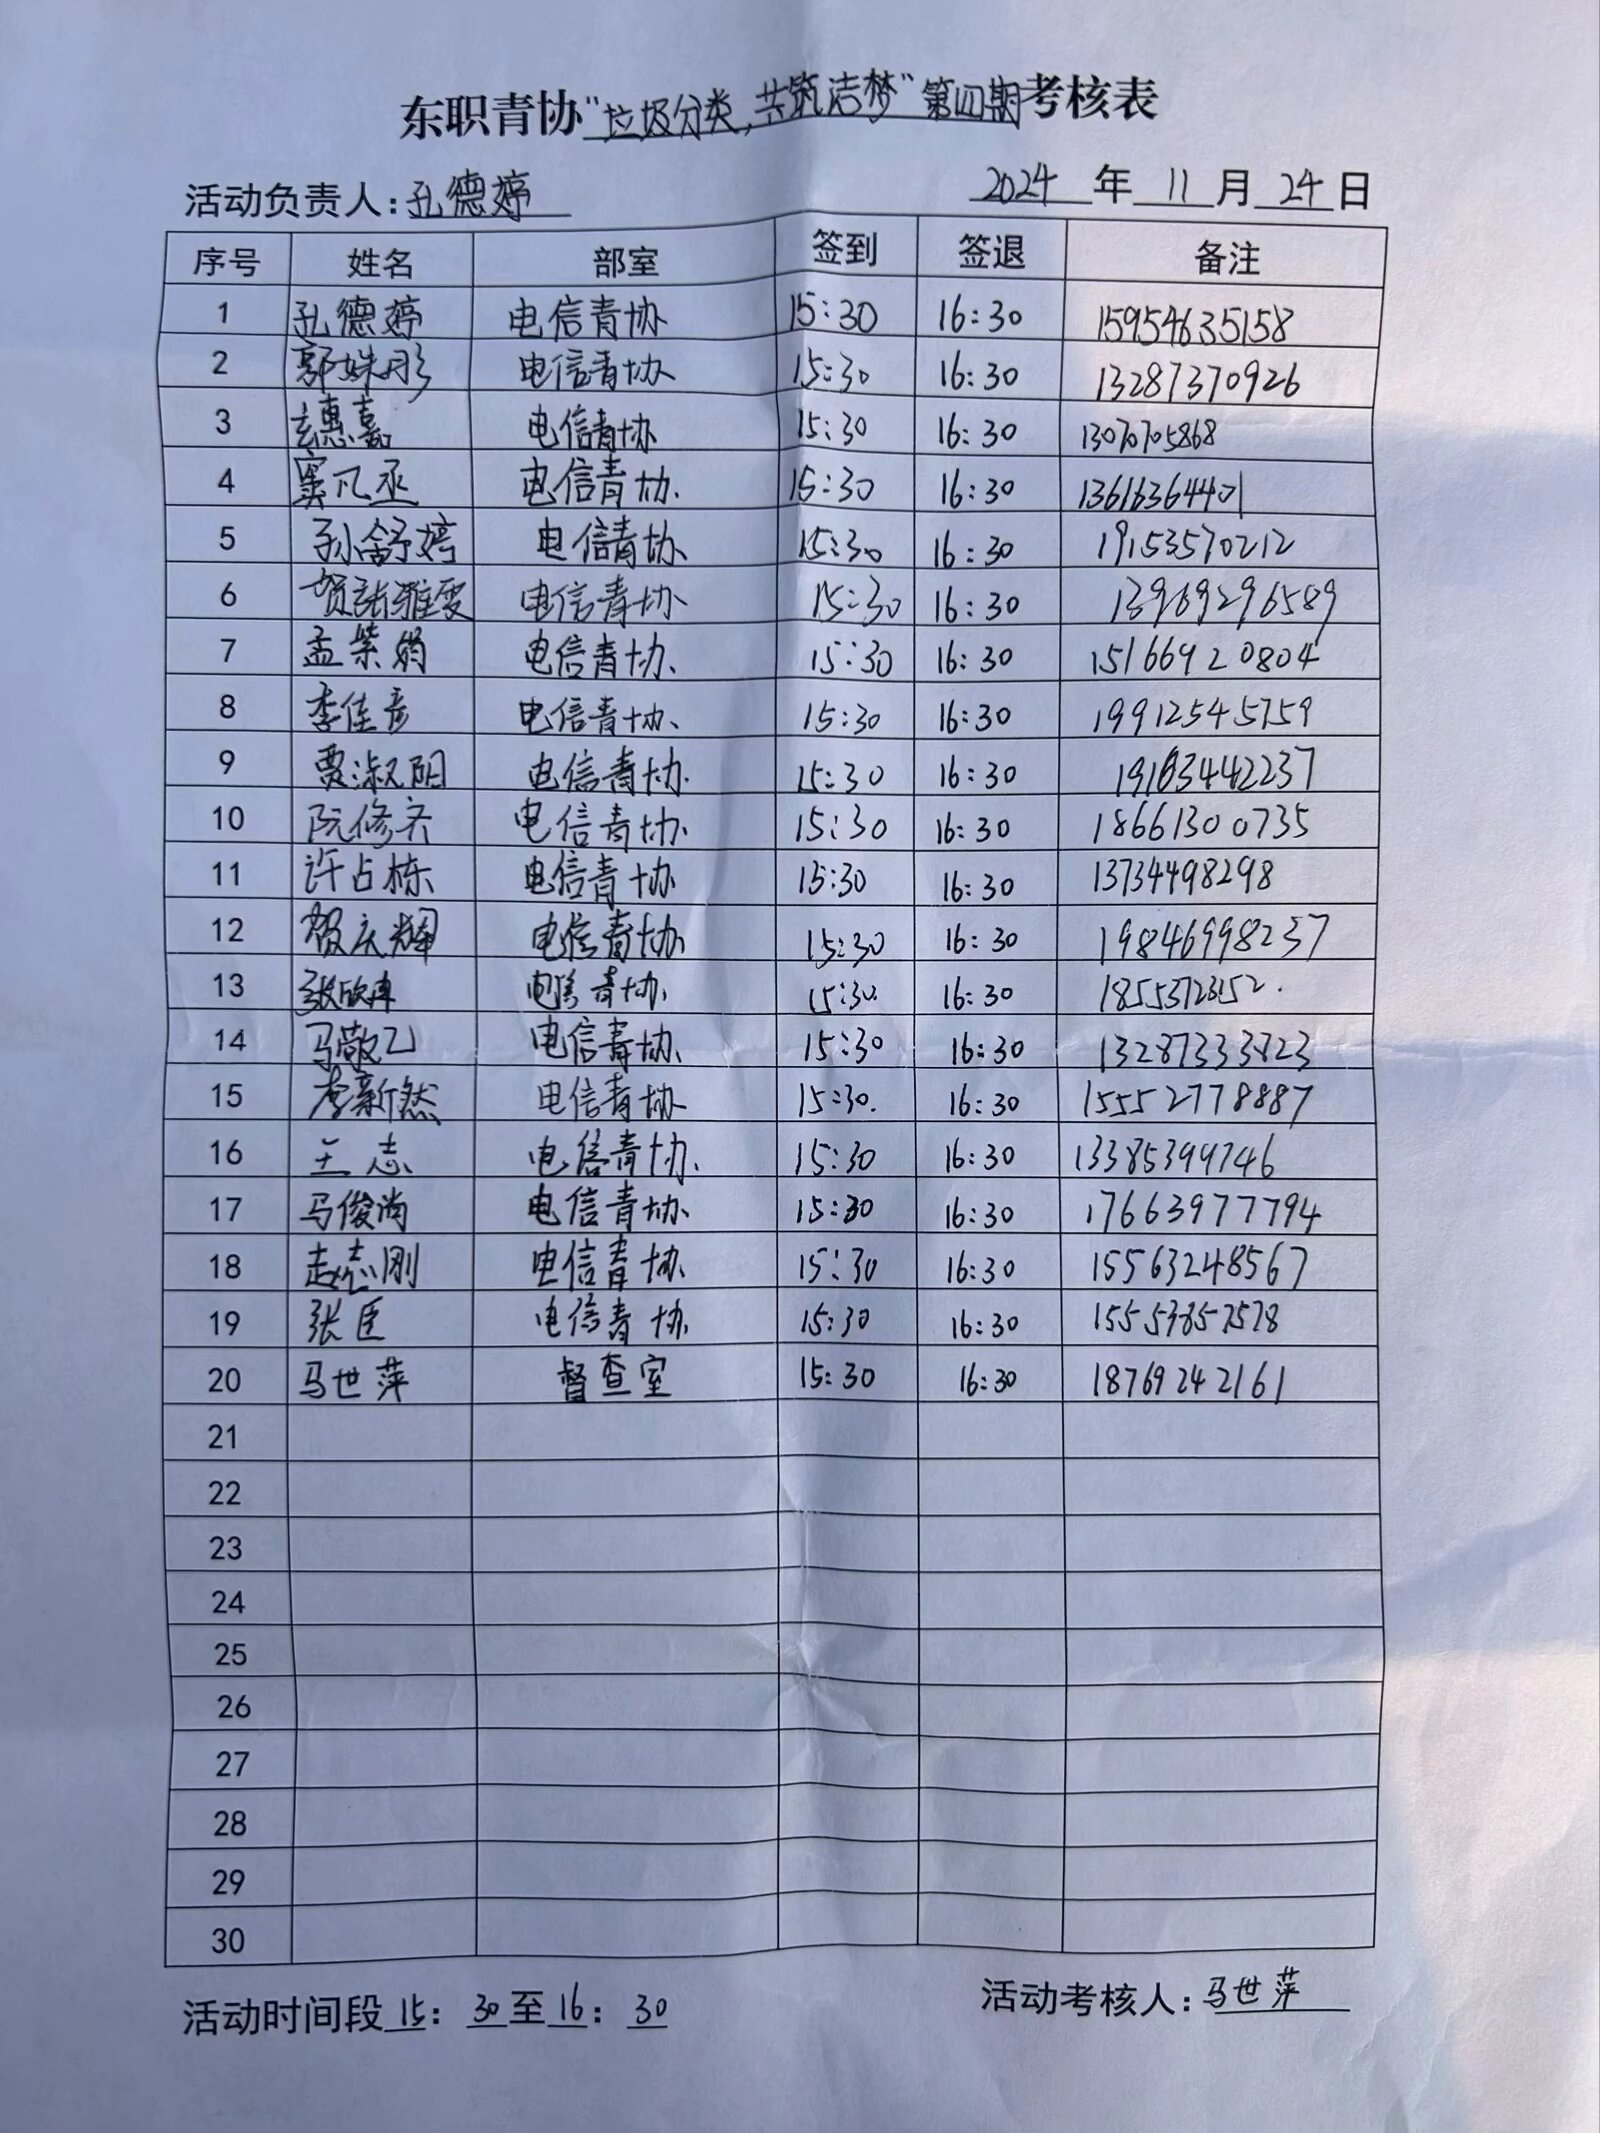 东职青协"垃圾分类,共筑洁梦"第四期考核表
活动负责人:孔德婷 2024 年 11 月 24 日
序号 姓名 部室 签到 签退 备注
1 孔德婷 电信青协 15:30 16:30 15954635158
2 郭姝彤 电信青协 15:30 16:30 13287370926
3 玄惠嘉 电信青协 15:30 16:30 13070705868
4 窦凡丞 电信青协. 15:30 16:30 13616364401
5 孙舒婷 电信青协. 15:30 16:30 19153570212
6 贺张雅雯 电信青协 15:30 16:30 13969296589
7 孟紫娟 电信青协. 15:30 16:30 15166920804
8 李佳彦 电信青协、 15:30 16:30 19912545759
9 贾淑阳 电信青协. 15:30 16:30 19163442237
10 阮修齐 电信青协. 15:30 16:30 18661300735
11 许占栋 电信青协 15:30 16:30 13734498298
12 贺庆辉 电信青协. 15:30 16:30 19846998237
13 张欣冉 电信青协. 15:30. 16:30
14 马敬乙 电信青协. 15:30 16:30 13287333823
15 李新然 电信青协 15:30. 16:30 15552778887
16 王志 电信青协. 15:30 16:30 13385399746
17 马俊尚 电信青协. 15:30 16:30 17663977794
18 赵志刚 电信青协. 15:30 16:30 15563248567
19 张臣 电信青协. 15:30 16:30 15553857578
20 马世萍 督查室 15:30 16:30 18769242161
21
22
23
24
25
26
27
28
29
30
活动时间段 15: 30至16: 30 活动考核人:马世萍